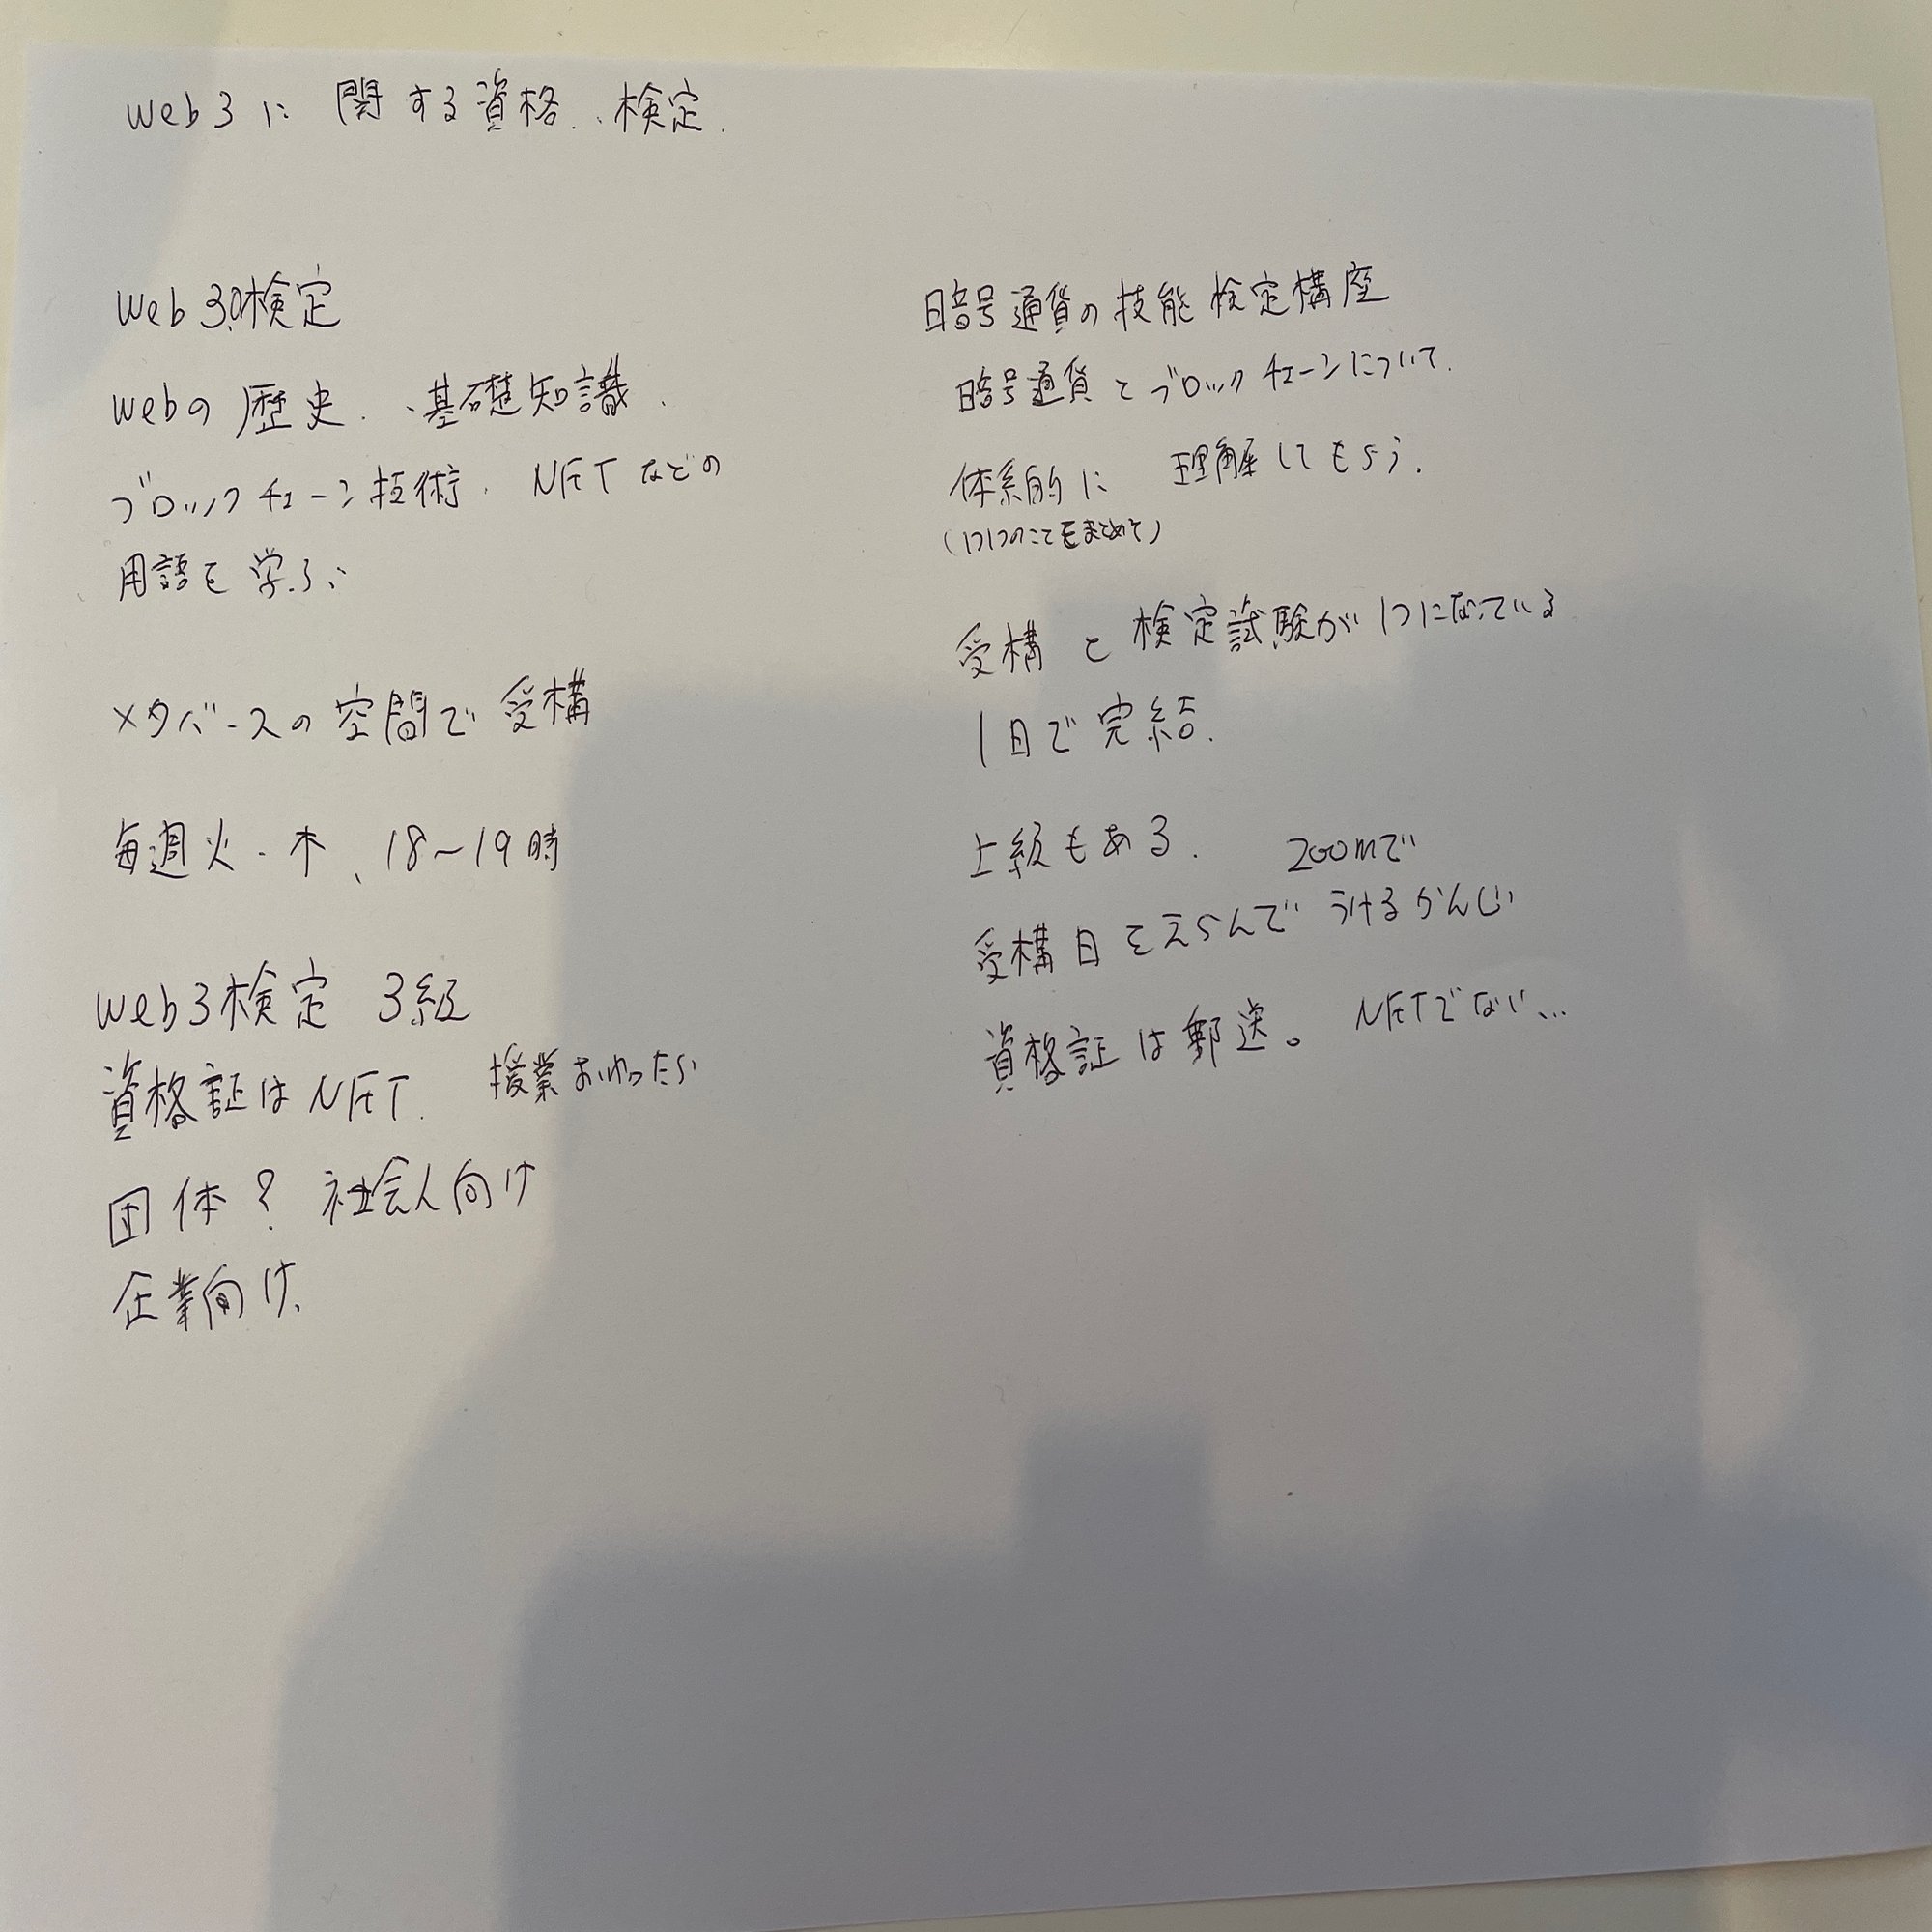 web3に関する資格、検定.
Web3.0検定
Webの歴史、基礎知識.
ブロックチェーン技術. NFTなどの
用語を学ぶ
メタバースの空間で受構
毎週火・木、18～19時
web3検定 3級
資格証はNFT. 授業おわったら
団体? 社会人向け
企業向け.
暗号通貨の技能検定構座
暗号通貨とブロックチェーンについて.
体系的に 理解してもらう.
(1つ1つのことをまとめて)
受構と検定試験が1つになっている
1日で完結.
上級もある. zoomで
受構日をえらんで うけるかんじ
資格証は郵送。NFTでない...